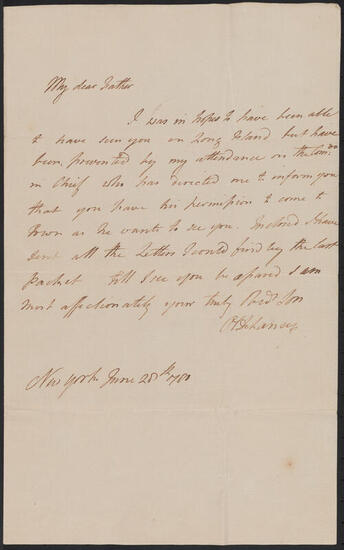 My dear Father
I was in hopes to have been able
to have seen you on Long Island but have
been prevented by my attendance on the Comr
in Chief, who has directed me to inform you
that you have his permission to come to
Town as he wants to see you. Inclosed I have
sent all the Letters I could find by the last
Packet till I see you be assured I am
most affectionately your truly Son
New York June 28th 1780